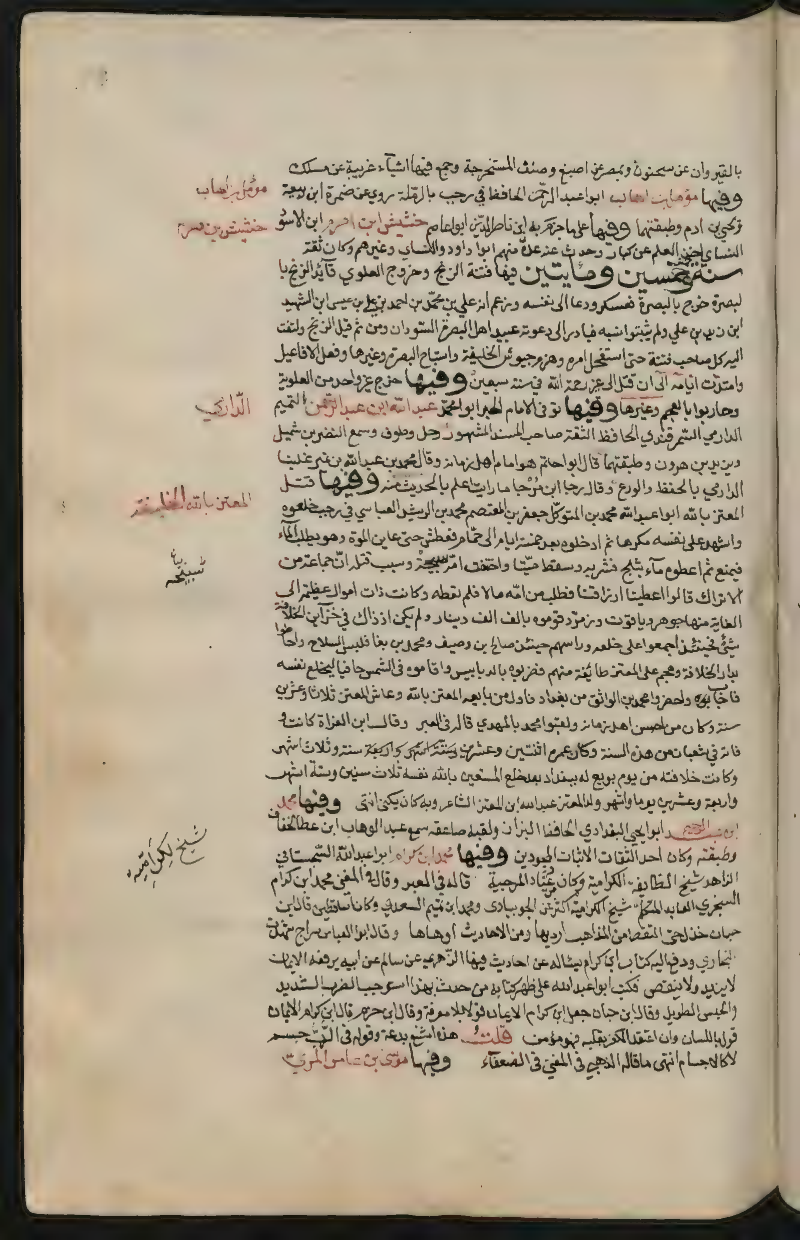 بالقيروان عن سحنون وبمصر عن اصبغ وصنف المستخرجة وجمع فيها اشياء غريبة عن مسلك
وفيها مؤمل بن اهاب ابو عبد الرحمن الحافظ في رجب بالرملة روى عن ضمرة ابن ربيعة
مؤمل بن اهاب
ويحيى بن ادم وطبقتهما وفيها على ما جزم به ابن ناصر الدين ابو عاصم خشيش ابن اصرم ابن الاسود
خشيش بن اصرم
النسائي اخذ العلم عن كبار وحدث عنه عدة منهم ابو داود والنسائي وغيرهم وكان ثقة
سنة خمسين ومايتين فيها فتنة الزنج وخروج العلوي قايد الزنج با
لبصرة خرج بالبصرة فعسكر ودعا الى نفسه وزعم انه علي بن محمد بن احمد بن علي بن عيسى ابن الشهيد
ابن زيد بن علي ولم يثبتوا نسبه فبادر الى دعوته عبيد اهل البصرة السودان ومن ثم قيل الزنج والتفت
اليه كل صاحب فتنة حتى استفحل امره وهزم جيوش الخليفة واستباح البصرة وغيرها وفعل الافاعيل
وامتدت ايامه الى ان قتل الى غير رحمة الله في سنة سبعين وفيها خرج غير واحد من العلوية
وحاربوا بالعجم وغيرها وفيها توفي الامام الحبر ابو محمد عبد الله ابن عبد الرحمن التميمي
الدارمي
الدارمي السمرقندي الحافظ الثقة صاحب المسند المشهور رحل وطوف وسمع النضر بن شميل
ويزيد بن هرون وطبقتهما قال ابو حاتم هو امام اهل زمانه وقال محمد بن عبد الله بن نمير غلبنا
الدارمي بالحفظ والورع وقال رجا ابن مرجا ما رايت اعلم بالحديث منه وفيها قتل
المعتز بالله ابو عبد الله محمد بن المتوكل جعفر بن المعتصم محمد بن الرشيد العباسي في رجب خلعوه
المعتز بالله الخليفة
واشهد على نفسه مكرها ثم ادخلوه بعد خمسة ايام الى حمام فعطش حتى عاين الموت وهو يطلب الماء
فيمنع ثم اعطوه ماء بثلج فشربه وسقط ميتا واختفت امه وسبب قتله ان جماعة من
الاتراك قالوا اعطينا ارزاقنا فطلب من امه مالا فلم تعطه وكانت ذات اموال عظيمة الى
الغاية منها جوهر وياقوت وزمرد قوموه بالف الف دينار ولم يكن اذ ذاك في خزاين الخلافة
شيء فحينئذ اجمعوا على خلعه وراسهم حينئذ صالح بن وصيف ومحمد بن بغا فلبس السلاح واحاطوا
بدار الخلافة وهجم على المعتز طايفة منهم فضربوه بالدبابيس واقاموه في الشمس حافيا ليخلع نفسه
فاجابهم واحضروا محمد بن الواثق من بغداد فاول من بايعه المعتز بالله وعاش المعتز ثلاثا وعشرين
سنة وكان من احسن اهل زمانه ولقبوا محمد بالمهدي قاله في العبر وقال ابن الفرات كانت و
فاته في شعبان من هذه السنة وكان عمره اثنتين وعشرين سنة وثلاث اشهر
وكانت خلافته من يوم بويع له ببغداد بعد خلع المستعين بالله نفسه ثلاث سنين وستة اشهر
واربعة وعشرين يوما وللمعتز عبد الله ابن المعتز الشاعر وبه كان يكنى انتهى وفيها محمد
ابن عبد الرحيم ابو يحيى البغدادي الحافظ البزاز ولقبه صاعقة سمع عبد الوهاب ابن عطا الخفاف
وطبقته وكان احد الثقات الاثبات المجودين وفيها محمد ابن كرام ابو عبد الله السجستاني
شيخ الكراميه
الزاهد شيخ الطايفة الكرامية وكان من عباد المرجية قاله في العبر وقال في المغني محمد ابن كرام
السجزي العابد المتكلم شيخ الكرامية اكثر عن الجويباري ومحمد ابن تميم السعدي وكانا ساقطين قال ابن
حبان خذل حتى التقط من المذاهب ارديها ومن الاحاديث اوهاها وقال ابو العباس سراج شهدت
البخاري ودفع اليه كتاب ابن كرام يساله عن احاديث فيها الزهري عن سالم عن ابيه يرفعه الايمان
لا يزيد ولا ينقص فكتب ابو عبد الله على ظهر كتابه من حدث بهذا استوجب الضرب الشديد
والحبس الطويل وقال ابن حبان جعل ابن كرام الايمان قولا بلا معرفة وقال ابن حزم قال ابن كرام الايمان
قول باللسان وان اعتقد الكفر بقلبه فهو مؤمن قلت هذا اشنع بدعة وقوله في الرب جسم
لا كالاجسام انتهى ما قاله الذهبي في المغني في الضعفاء وفيها موسى بن عامر المري